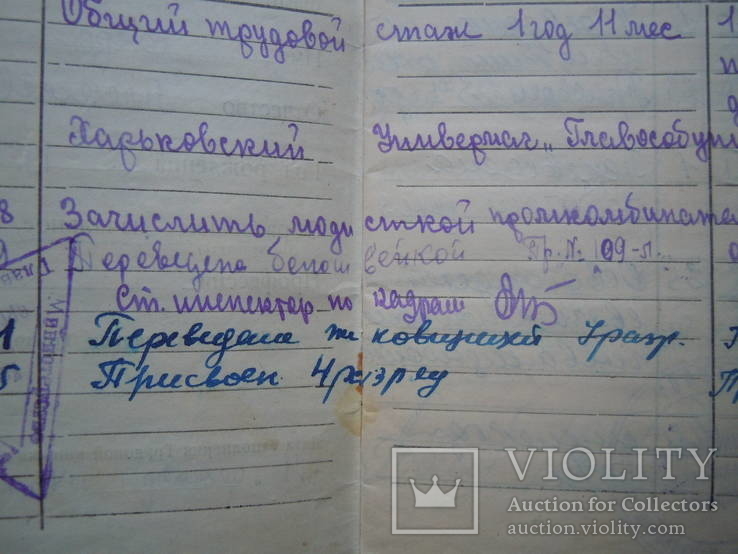 Общий трудовой стаж 1 год 11 мес
Харьковский Универмаг „Главособун
8 Зачислить модисткой промкомбината
Переведена белошвейкой Пр. № 109-л.
Ст. инспектор по кадрам
1 Переведена 4 разр.
5 Присвоен 4 разряд
VIOLITY
Auction for Collectors
auction.violity.com